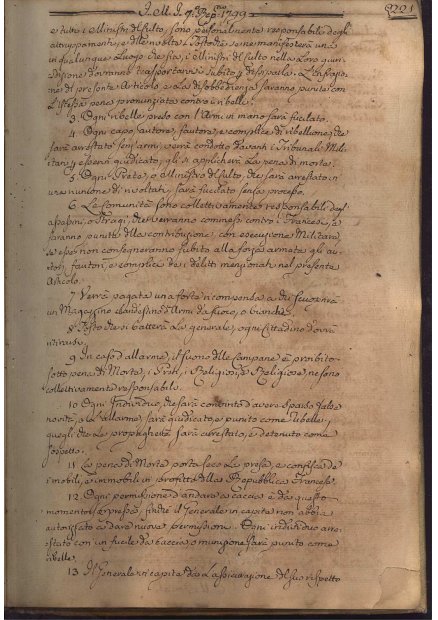 1799
221
e tutti i Ministri del Culto, sono personalmente responsabile degli
attruppamenti, e
in qualunque Luogo che sia, i Ministri del culto nella Loro giuri-
sdizione dovranno trasportarsi subito, e
ne di presente Articolo, e la disobbedienza saranno punite con
L'istessa pena pronunziata contro i ribelle.
3. Ogni ribelle preso con l'Armi in mano sarà fucilato.
4. Ogni capo, autore, fautore, e complice di ribellione, che
sarà arrestato senz'armi, verrà condotto davanti i Tribunali Mili-
tari, e essendi giudicato, gli si applicherà la pena di morte.
5. Ogni Prete, o Ministro del culto, che sarà arrestato in
una riunione di rivoltati, sarà fucilato senza processo.
6. Le Comunità sono collettivamente responsabili degl'
assassini, o Stragi, che verranno commessi contro i Francesi, e
saranno punite della contribuzione, con esecuzione Militare,
se esse non consegneranno subito alla forza armata gli au-
tori, fautori, e complice de i delitti menzionati nel presente
Articolo.
7. Verrà pagata una forte ricompensa a chi scuoprirà
un Magazzino clandestino d'Armi da fuoco, o bianche.
8. Tosto che si batterà la generale, ogni Cittadino dovrà
ritirarsi.
9. In caso d'allarme, il suono delle Campane è proibito
sotto pena di Morte, i Preti, i Religiosi, e Religiose, ne sono
collettivamente responsabile.
10. Ogni Individuo, che sarà convinto d'avere sparso false
novità, o allarme, sarà giudicato, e punito come ribelle,
quegli che le propagherà sarà arrestato, e detenuto come
sospetto.
11. La pena di Morte porta seco la presa, e confisca de
i mobili, e immobili in profitto della Repubblica Francese.
12. Ogni permissione d'andare a caccia è da questo
momento soppressa, finchè il Generale in capite non abbia
autorizzato a dare nuova permissione. Ogni individuo arre-
stato con un fucile da caccia, o munizione sarà punito come
ribelle.
13. Il Generale in capite dà l'assicurazione del suo rispetto